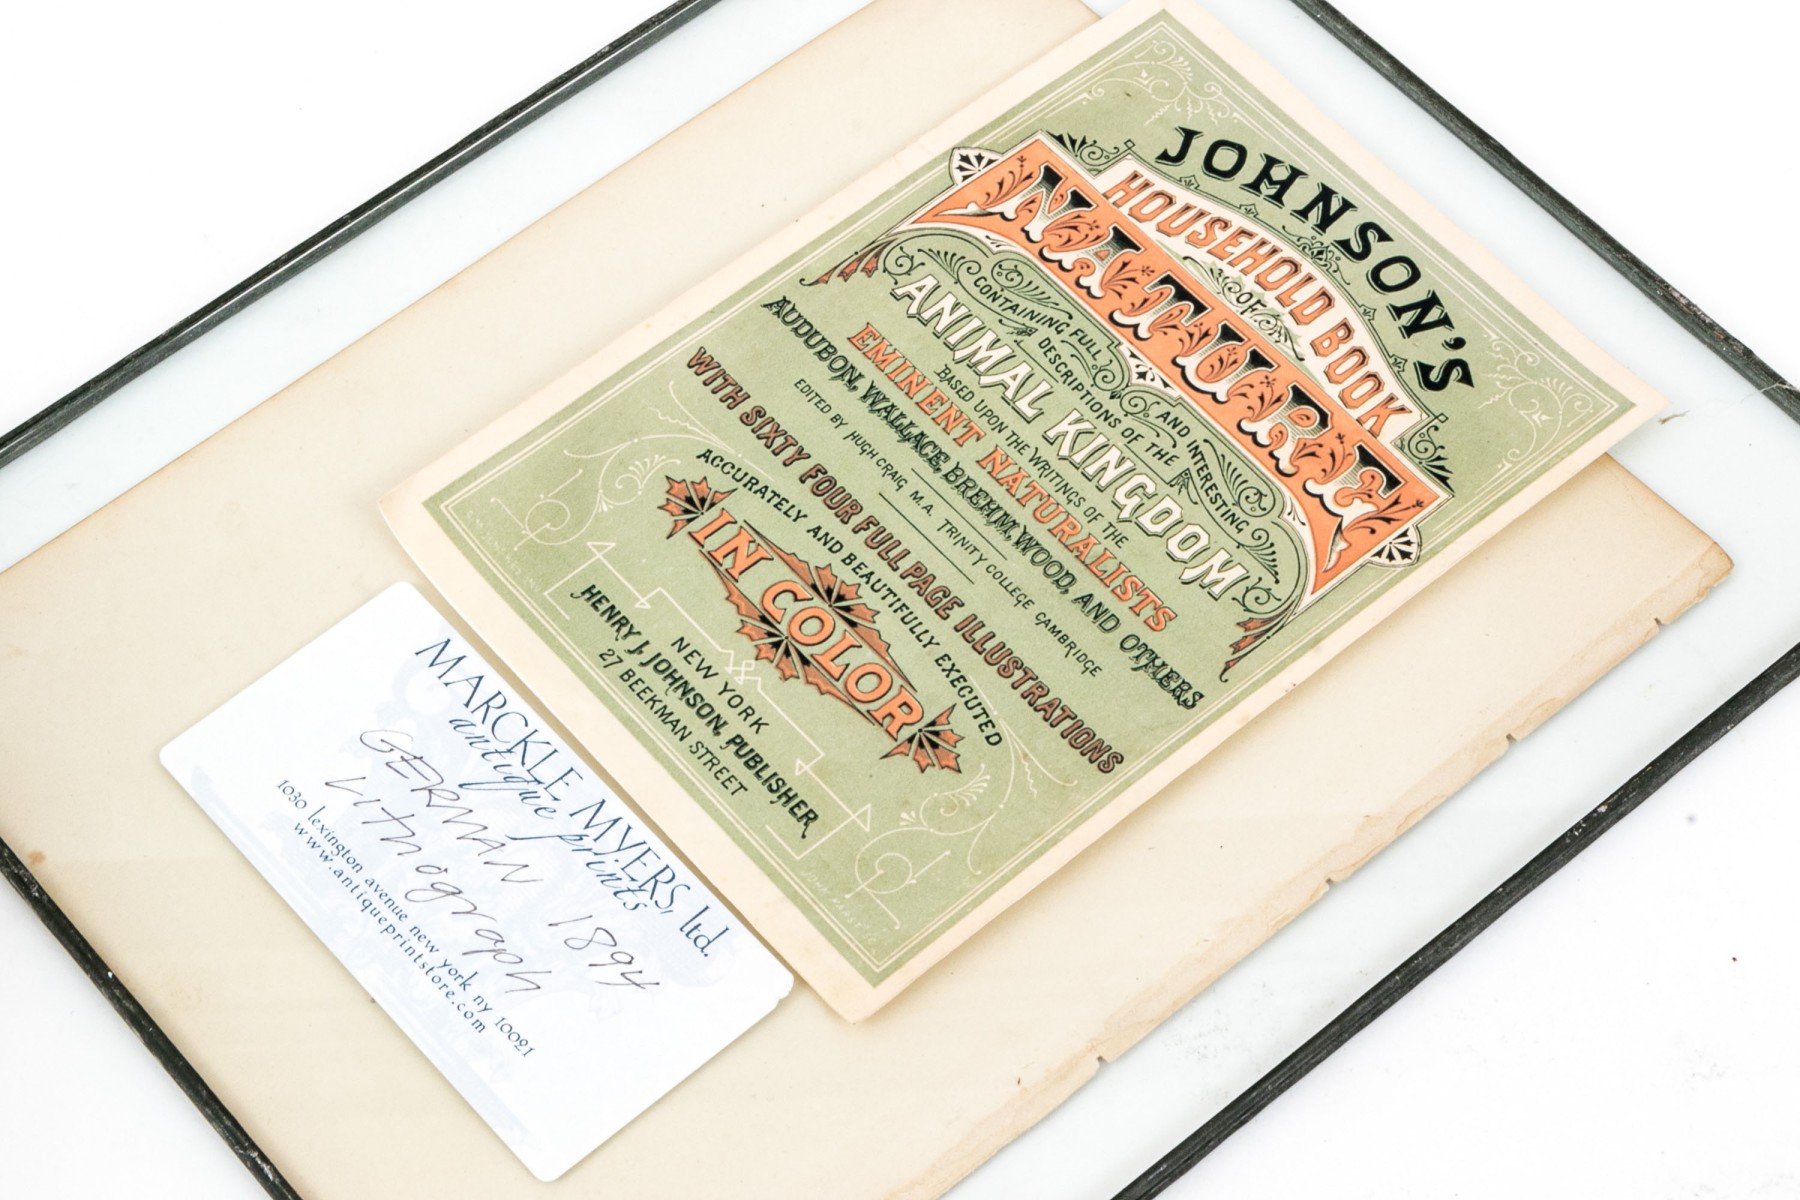 JOHNSON'S
HOUSEHOLD BOOK
OF
NATURE
CONTAINING FULL AND INTERESTING
DESCRIPTIONS OF THE
ANIMAL KINGDOM
BASED UPON THE WRITINGS OF THE
EMINENT NATURALISTS
AUDUBON, WALLACE, BREHM, WOOD, AND OTHERS
EDITED BY HUGH CRAIG, M.A. TRINITY COLLEGE CAMBRIDGE
WITH SIXTY FOUR FULL PAGE ILLUSTRATIONS
ACCURATELY AND BEAUTIFULLY EXECUTED
IN COLOR
NEW YORK
HENRY J. JOHNSON, PUBLISHER
27 BEEKMAN STREET
MARCKLE MYERS, ltd.
antique prints
GERMAN 1894
Lithograph
1030 lexington avenue new york ny 10021
www.antiqueprintstore.com